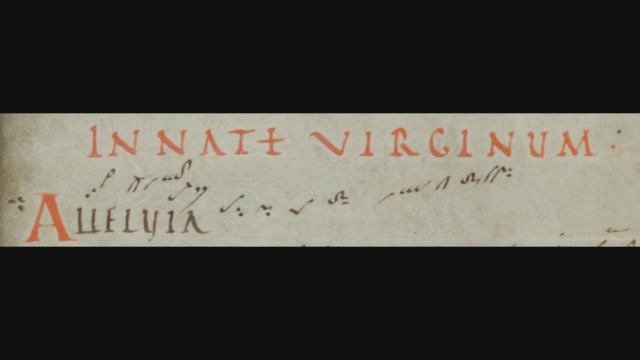 IN NAT̵ VIRGINUM·
ALLELUIA